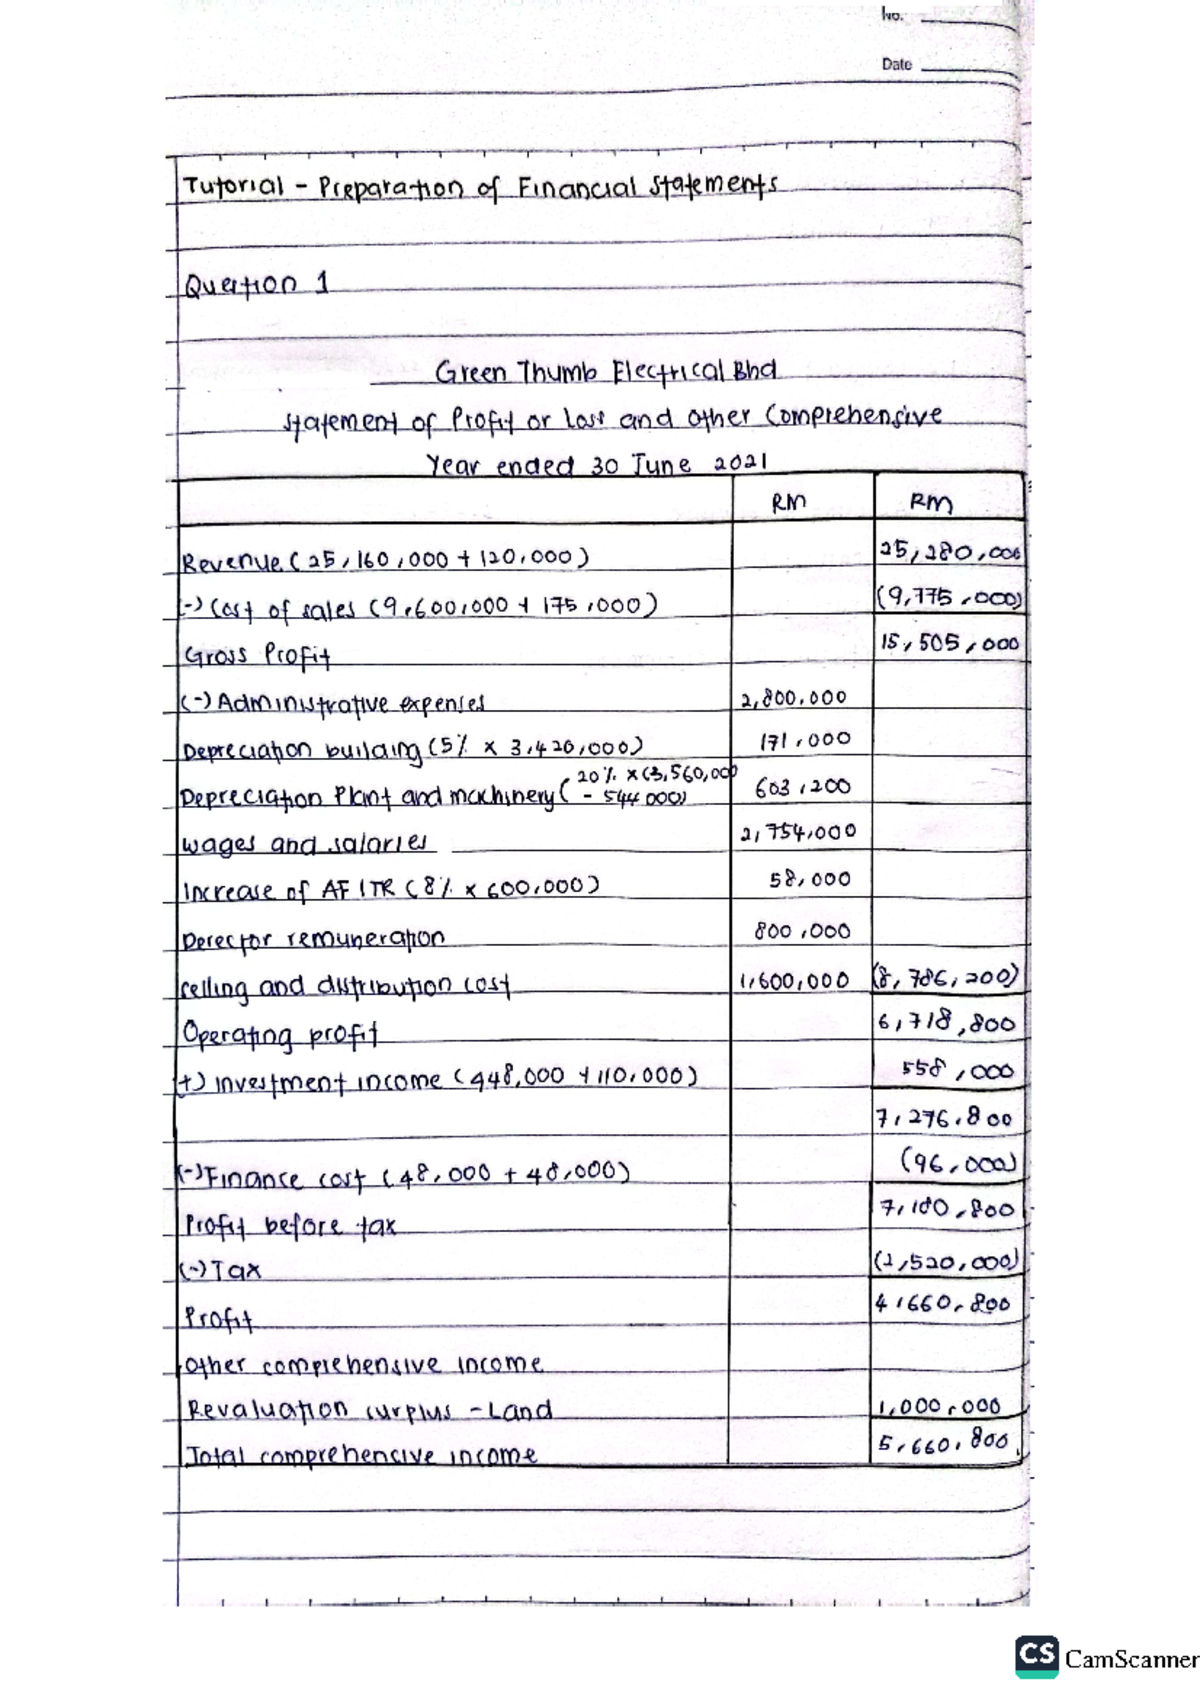 No.
Date
Tutorial - Preparation of Financial Statements
Question 1
Green Thumb Electrical Bhd
Statement of Profit or Loss and Other Comprehensive
Year ended 30 June 2021
RM RM
Revenue (25,160,000 + 120,000) 25,280,000
(-) Cost of sales (9,600,000 + 175,000) (9,775,000)
Gross Profit 15,505,000
(-) Administrative expenses 2,800,000
Depreciation building (5% x 3,420,000) 171,000
Depreciation Plant and machinery (20% x (3,560,000 - 544 000) 603,200
wages and salaries 2,754,000
Increase of AFITR (8% x 600,000) 58,000
Derector remuneration 800,000
selling and distribution cost 1,600,000 (8,786,200)
Operating profit 6,718,800
(+) investment income (448,000 + 110,000) 558,000
7,276,800
(-) Finance cost (48,000 + 48,000) (96,000)
Profit before tax 7,180,800
(-) Tax (2,520,000)
Profit 4,660,800
Other comprehensive income
Revaluation surplus - Land 1,000,000
Total comprehencive income 5,660,800
CS CamScanner